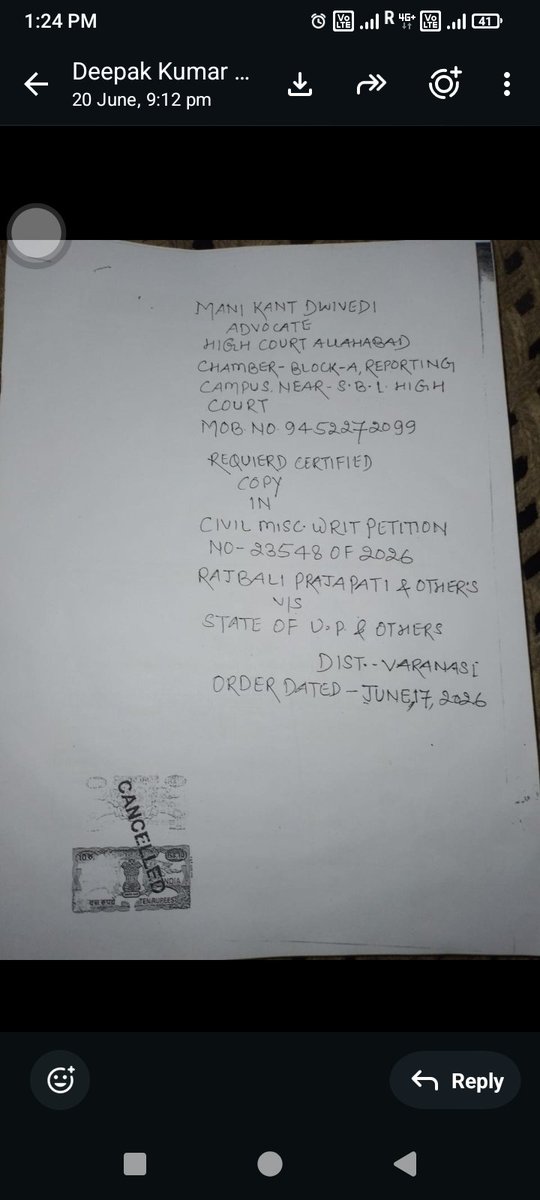 1:24 PM
R 4G+
Vo LTE
Vo LTE
41
Deepak Kumar ...
20 June, 9:12 pm
MANI KANT DWIVEDI
ADVOCATE
HIGH COURT ALLAHABAD
CHAMBER- BLOCK-A, REPORTING
CAMPUS NEAR-S.B.I. HIGH
COURT
MOB. NO. 9452272099
REQUIERD CERTIFIED
COPY
IN
CIVIL MISC. WRIT PETITION
NO- 23548 OF 2026
RAJBALI PRAJAPATI & OTHER'S
V/S
STATE OF U.P. & OTHERS
DIST.-VARANASI
ORDER DATED - JUNE,17, 2026
CANCELLED
INDIA
TEN RUPEES
Reply